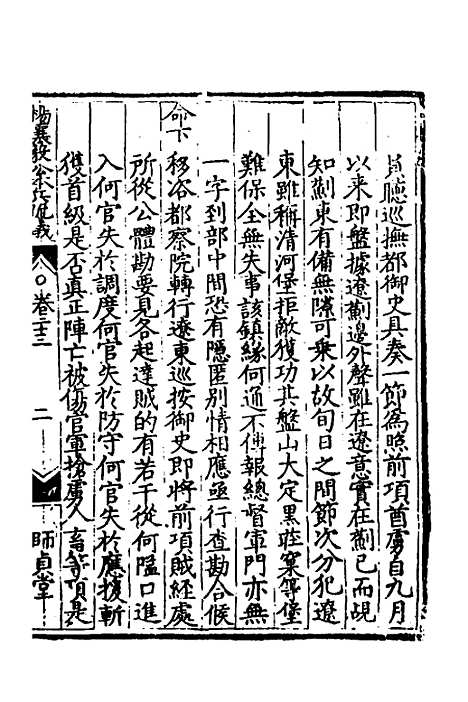 員聽巡撫都御史具奏一節爲照前項酋虜自九月
以来即盤據遼薊邊外聲雖在遼意實在薊已而覘
知薊東有備無隙可乗以故旬日之間節次分犯遼
東雖稱清河堡拒敵獲功其盤山大定黒莊窠等堡
難保全無失事該鎮緣何通不傳報總督軍門亦無
一字到部中間恐有隱匿别情相應亟行查勘合候
命下
移咨都察院轉行遼東巡按御史即將前項賊經處
所從公體勘要見各起達賊的有若干從何隘口進
入何官失於調度何官失於防守何官失於應援斬
獲首級是否真正陣亡被傷官軍搶虜人畜等項是
楊襄毅公本兵疏議
卷二十三
二
師貞堂